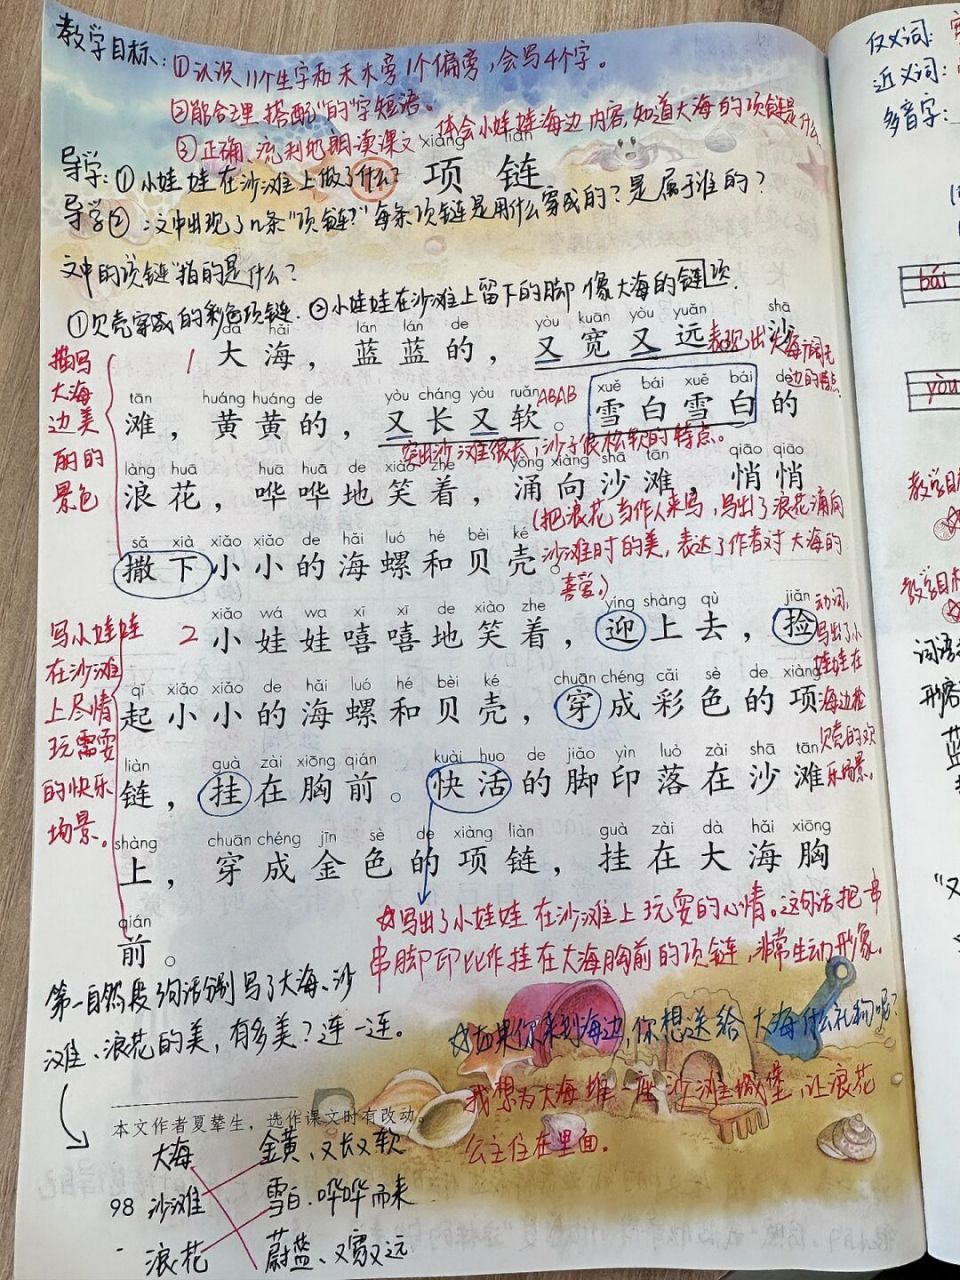 教学目标:①认识11个生字和禾木旁1个偏旁,会写4个字。
②能合理搭配"的"字短语。
③正确、流利地朗读课文 体会小娃娃海边内容,知道大海的项链是什么
xiàng liàn
项 链
导学:①小娃娃在沙滩上做了什么?
导学②:文中出现了几条"项链?"每条项链是用什么穿成的?是属于谁的?
文中的"项链"指的是什么?
①贝壳穿成的彩色项链.②小娃娃在沙滩上留下的脚 像大海的链项.
dà hǎi lán lán de yòu kuān yòu yuǎn shā
1 大海,蓝蓝的,又宽又远。沙
表现出大海广阔无边的特点
tān huáng huáng de yòu cháng yòu ruǎn xuě bái xuě bái de
滩,黄黄的,又长又软。雪白雪白的
ABAB
突出沙滩很长,沙子很松软的特点。
làng huā huā huā de xiào zhe yǒng xiàng shā tān qiāo qiāo
浪花,哗哗地笑着,涌向沙滩,悄悄
(把浪花当作人来写,写出了浪花涌向
sǎ xià xiǎo xiǎo de hǎi luó hé bèi ké
撒下小小的海螺和贝壳。
沙滩时的美,表达了作者对大海的
喜爱。)
描写
大海
边美
丽的
景色
xiǎo wá wa xī xī de xiào zhe yíng shàng qù jiǎn
2 小娃娃嘻嘻地笑着,迎上去,捡
qǐ xiǎo xiǎo de hǎi luó hé bèi ké chuān chéng cǎi sè de xiàng
起小小的海螺和贝壳,穿成彩色的项
liàn guà zài xiōng qián kuài huo de jiǎo yìn luò zài shā tān
链,挂在胸前。快活的脚印落在沙滩
shàng chuān chéng jīn sè de xiàng liàn guà zài dà hǎi xiōng
上,穿成金色的项链,挂在大海胸
qián
前。
动词,
写出了小
娃娃在
海边捡
贝壳的欢
乐场景。
写小娃娃
在沙滩
上尽情
玩需耍
的快乐
场景。
☆写出了小娃娃在沙滩上玩耍的心情。这句话把一串
串脚印比作挂在大海胸前的项链,非常生动形象。
第一自然段3句话分别写了大海、沙
滩、浪花的美,有多美?连一连。
☆如果你来到海边,你想送给大海什么礼物呢?
我想为大海堆一座沙滩城堡,让浪花
公主住在里面。
本文作者夏辇生,选作课文时有改动。
大海 金黄、又长又软
98 沙滩 雪白.哗哗而来
浪花 蔚蓝、又宽又远
反义词:
近义词:
多音字:
bái
yòu
教学目
教学目标
词语
形容
蓝
"又